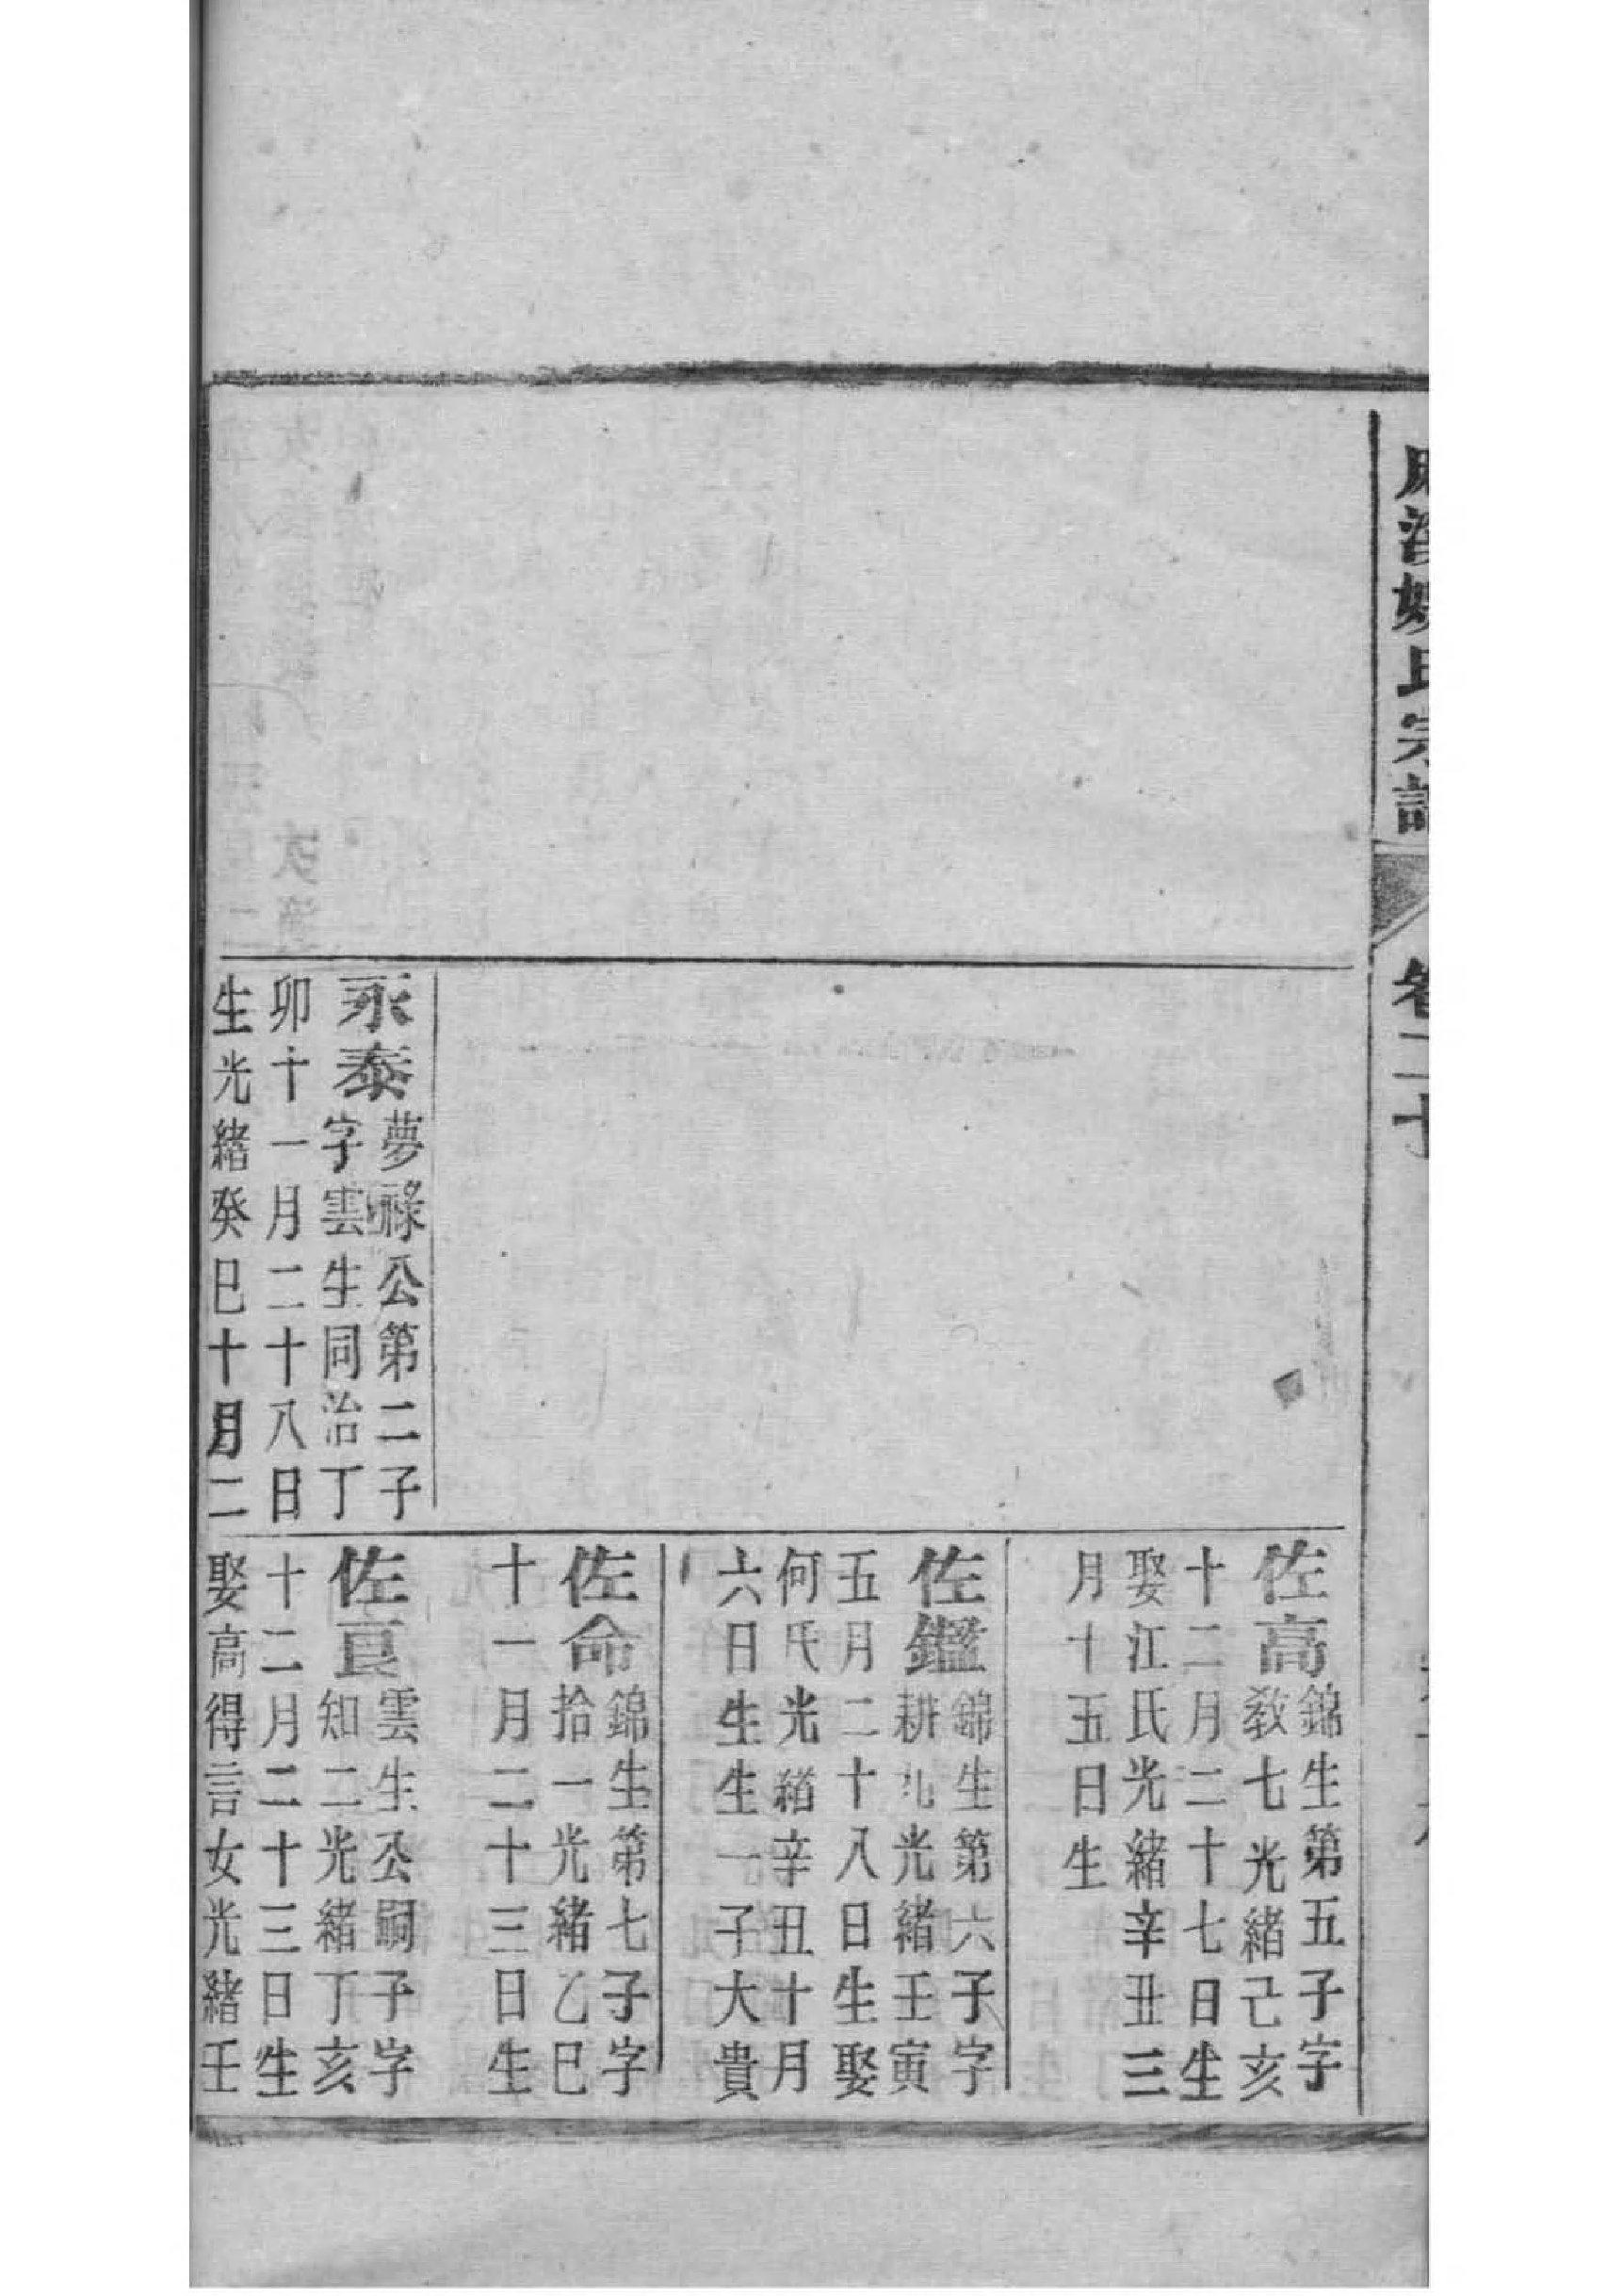 氏宗譜
卷二十
永泰
夢祿公第二子
字雲生同治丁
卯十一月二十八日
生光緒癸巳十月二
佐高
錦生第五子字
敎七光緒己亥
十二月二十七日生
娶江氏光緒辛丑三
月十五日生
佐鑑
錦生第六子字
耕九光緒壬寅
五月二十八日生娶
何氏光緒辛丑十月
六日生生一子大貴
佐命
錦生第七子字
拾一光緒乙巳
十一月二十三日生
佐良
雲生公嗣子字
知二光緒丁亥
十二月二十三日生
娶高得言女光緒壬